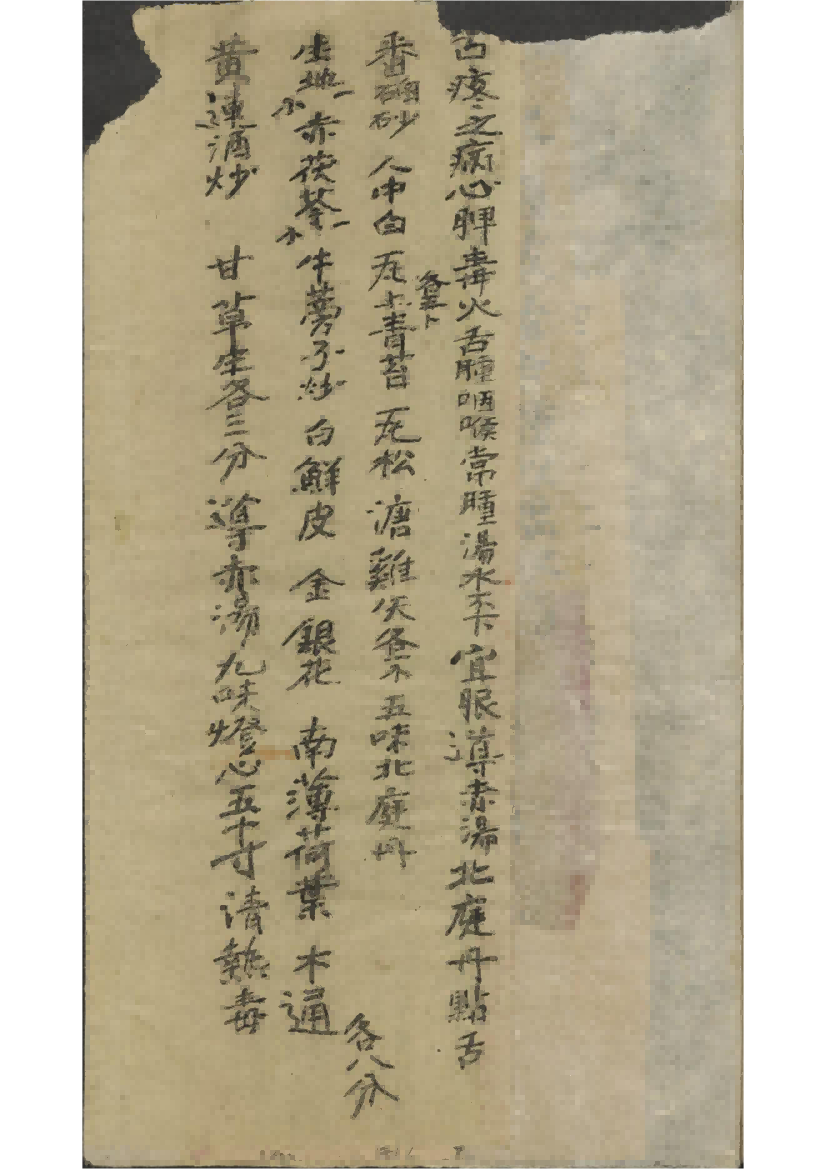 舌疼之病心脾毒火舌腫咽喉常腫湯水不下宜服導赤湯北庭丹點舌
番硇砂 人中白 瓦上青苔 瓦松 溏雞矢 五味北庭丹
各五卜
生地 赤茯苓 牛蒡子炒 白鮮皮 金銀花 南薄荷葉 木通
各八分
黄連酒炒 甘草生各三分 導赤湯九味燈心五十寸清熱毒